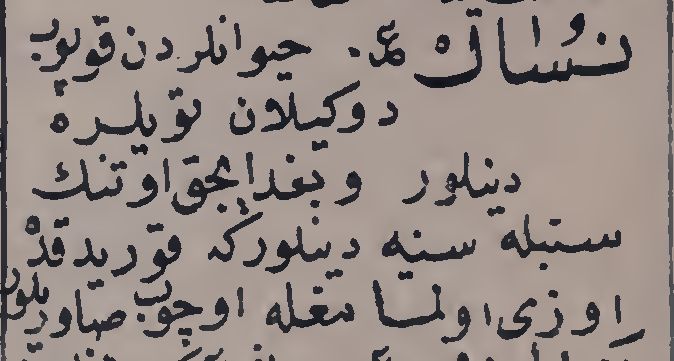 نُسَاڵ حيوانلردن قوپوب
دوكيلان تويلره
دينلور وبغدايجق اوتنك
سنبله سنه دينلوركه قوريدقده
اوزى اولمامغله اوچوب صاوريلور